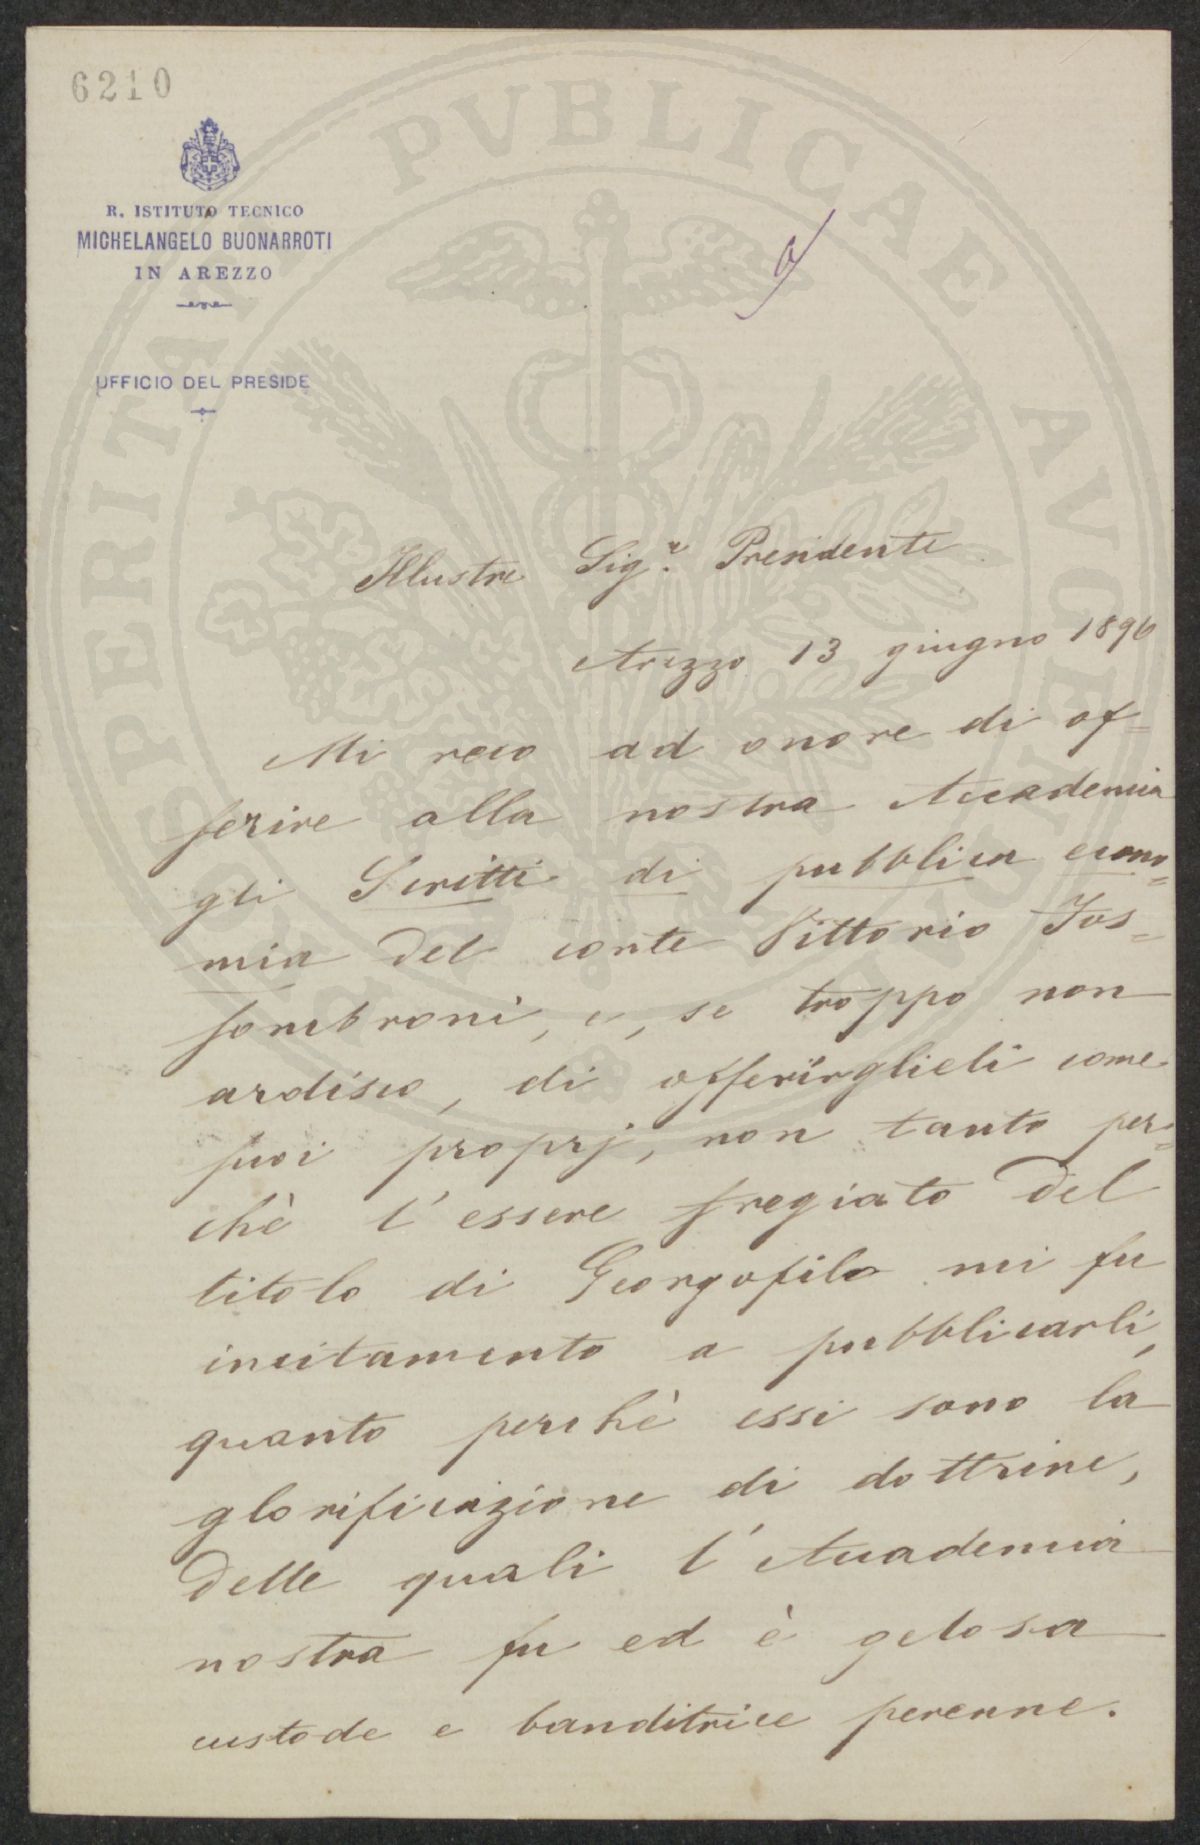 6210
R. ISTITUTO TECNICO
MICHELANGELO BUONARROTI
IN AREZZO
UFFICIO DEL PRESIDE
PROSPERITATI PVBLICAE AVGENDAE
Illustre Sig.r Presidente
Arezzo 13 giugno 1896
Mi reco ad onore di of=
ferire alla nostra Accademia
gli Scritti di pubblica econo=
mia del conte Vittorio Fos=
sombroni, e, se troppo non
ardisco, di offerirglieli come
suoi proprj, non tanto per=
chè l'essere fregiato del
titolo di Georgofilo mi fu
incitamento a pubblicarli,
quanto perchè essi sono la
glorificazione di dottrine,
delle quali l'Accademia
nostra fu ed è gelosa
custode e banditrice perenne.